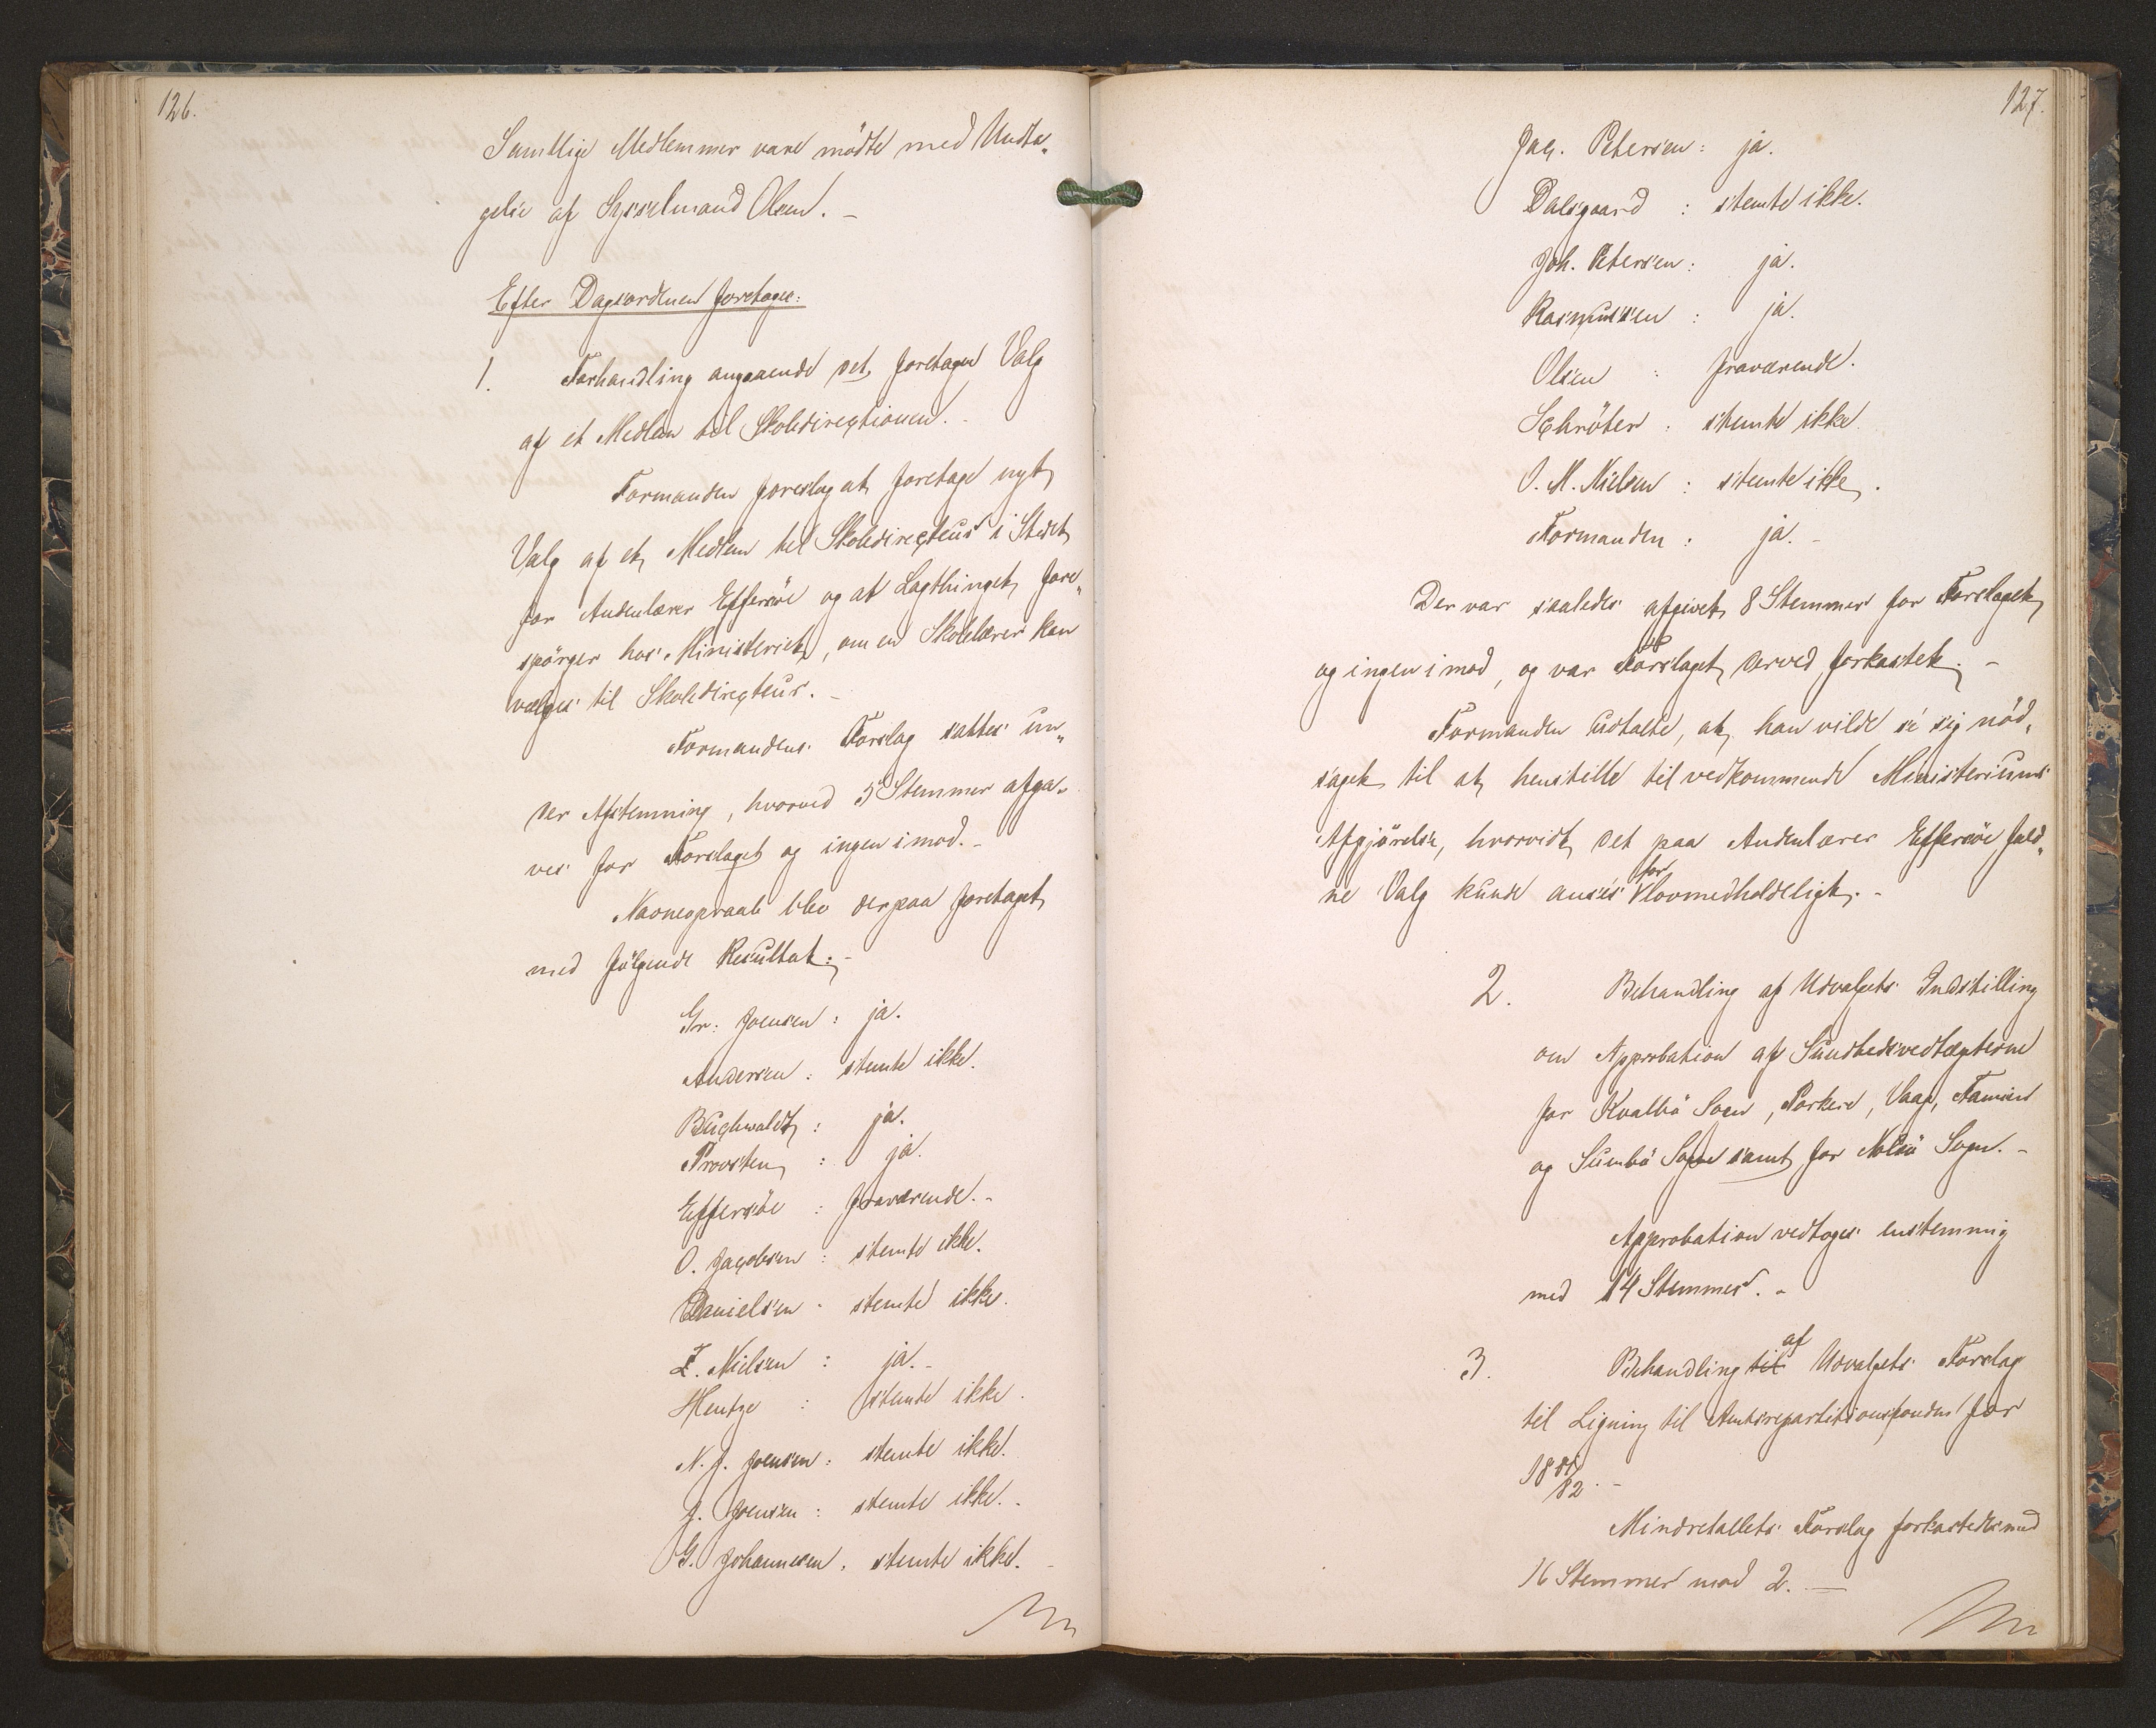 126.
Samtlige Medlemmer vare mödte med Undta„
gelse af Sysselmand Olsen. –
Efter Dagsordenen foretoges:
1. Forhandling angaaende det foretagne Valg
af et Medlem til Skoledirectionen. –
Formanden foreslog at foretage nyt
Valg af et Medlem til Skoledirecteur i Stedet
for Andenlærer Effersöe og at Lagthinget fore„
spörger hos Ministeriet, om en Skolelærer kan
vælges til Skoledirecteur. –
Formandens Forslag sattes un„
der Afstemning, hvorved 5 Stemmer afga„
ves for Forslaget og ingen imod. –
Navneopraab blev derpaa foretaget
med fölgende Resultat: –
Gr: Joensen : ja.
Andersen : stemte ikke.
Buchwaldt : ja.
Provsten : ja.
Effersöe : fraværende. –
O. Jacobsen : stemte ikke.
Danielsen - stemte ikke.
Z. Nielsen : ja. –
Hentze : stemte ikke.
N. J. Joensen : stemte ikke.
J. Joensen : stemte ikke. –
G. Johannesen . stemte ikke. –
127.
Jac. Petersen : ja.
Dalsgaard : stemte ikke.
Joh. Petersen : ja.
Rasmussen : ja.
Olsen : fraværende.
Schröter : stemte ikke
O. M. Nielsen : stemte ikke.
Formanden : ja. –
Der var saaledes afgivet 8 Stemmer for Forslaget
og ingen imod, og var Forslaget derved forkastet. –
Formanden udtalte, at han vilde se sig nöd„
saget til at henstille til vedkommende Ministeriums
Afgjörelse, hvorvidt det paa Andenlærer Effersöe fald„
ne Valg kunde ansees for lovmedholdeligt. –
2. Behandling af Udvalgets Indstilling
om Approbation af Sundhedsvedtægterne
for Kvalbö Sogn, Porkere, Vaag, Famien
og Sumbö Sogne samt for Nolsö Sogn. –
Approbation vedtoges enstemmig
med 14 Stemmer. –
3. Behandling til af Udvalgets Forslag
til Ligning til Amtsrepartitionsfonden for
1881/82. –
Mindretallets Forslag forkastedes med
16 Stemmer mod 2. –